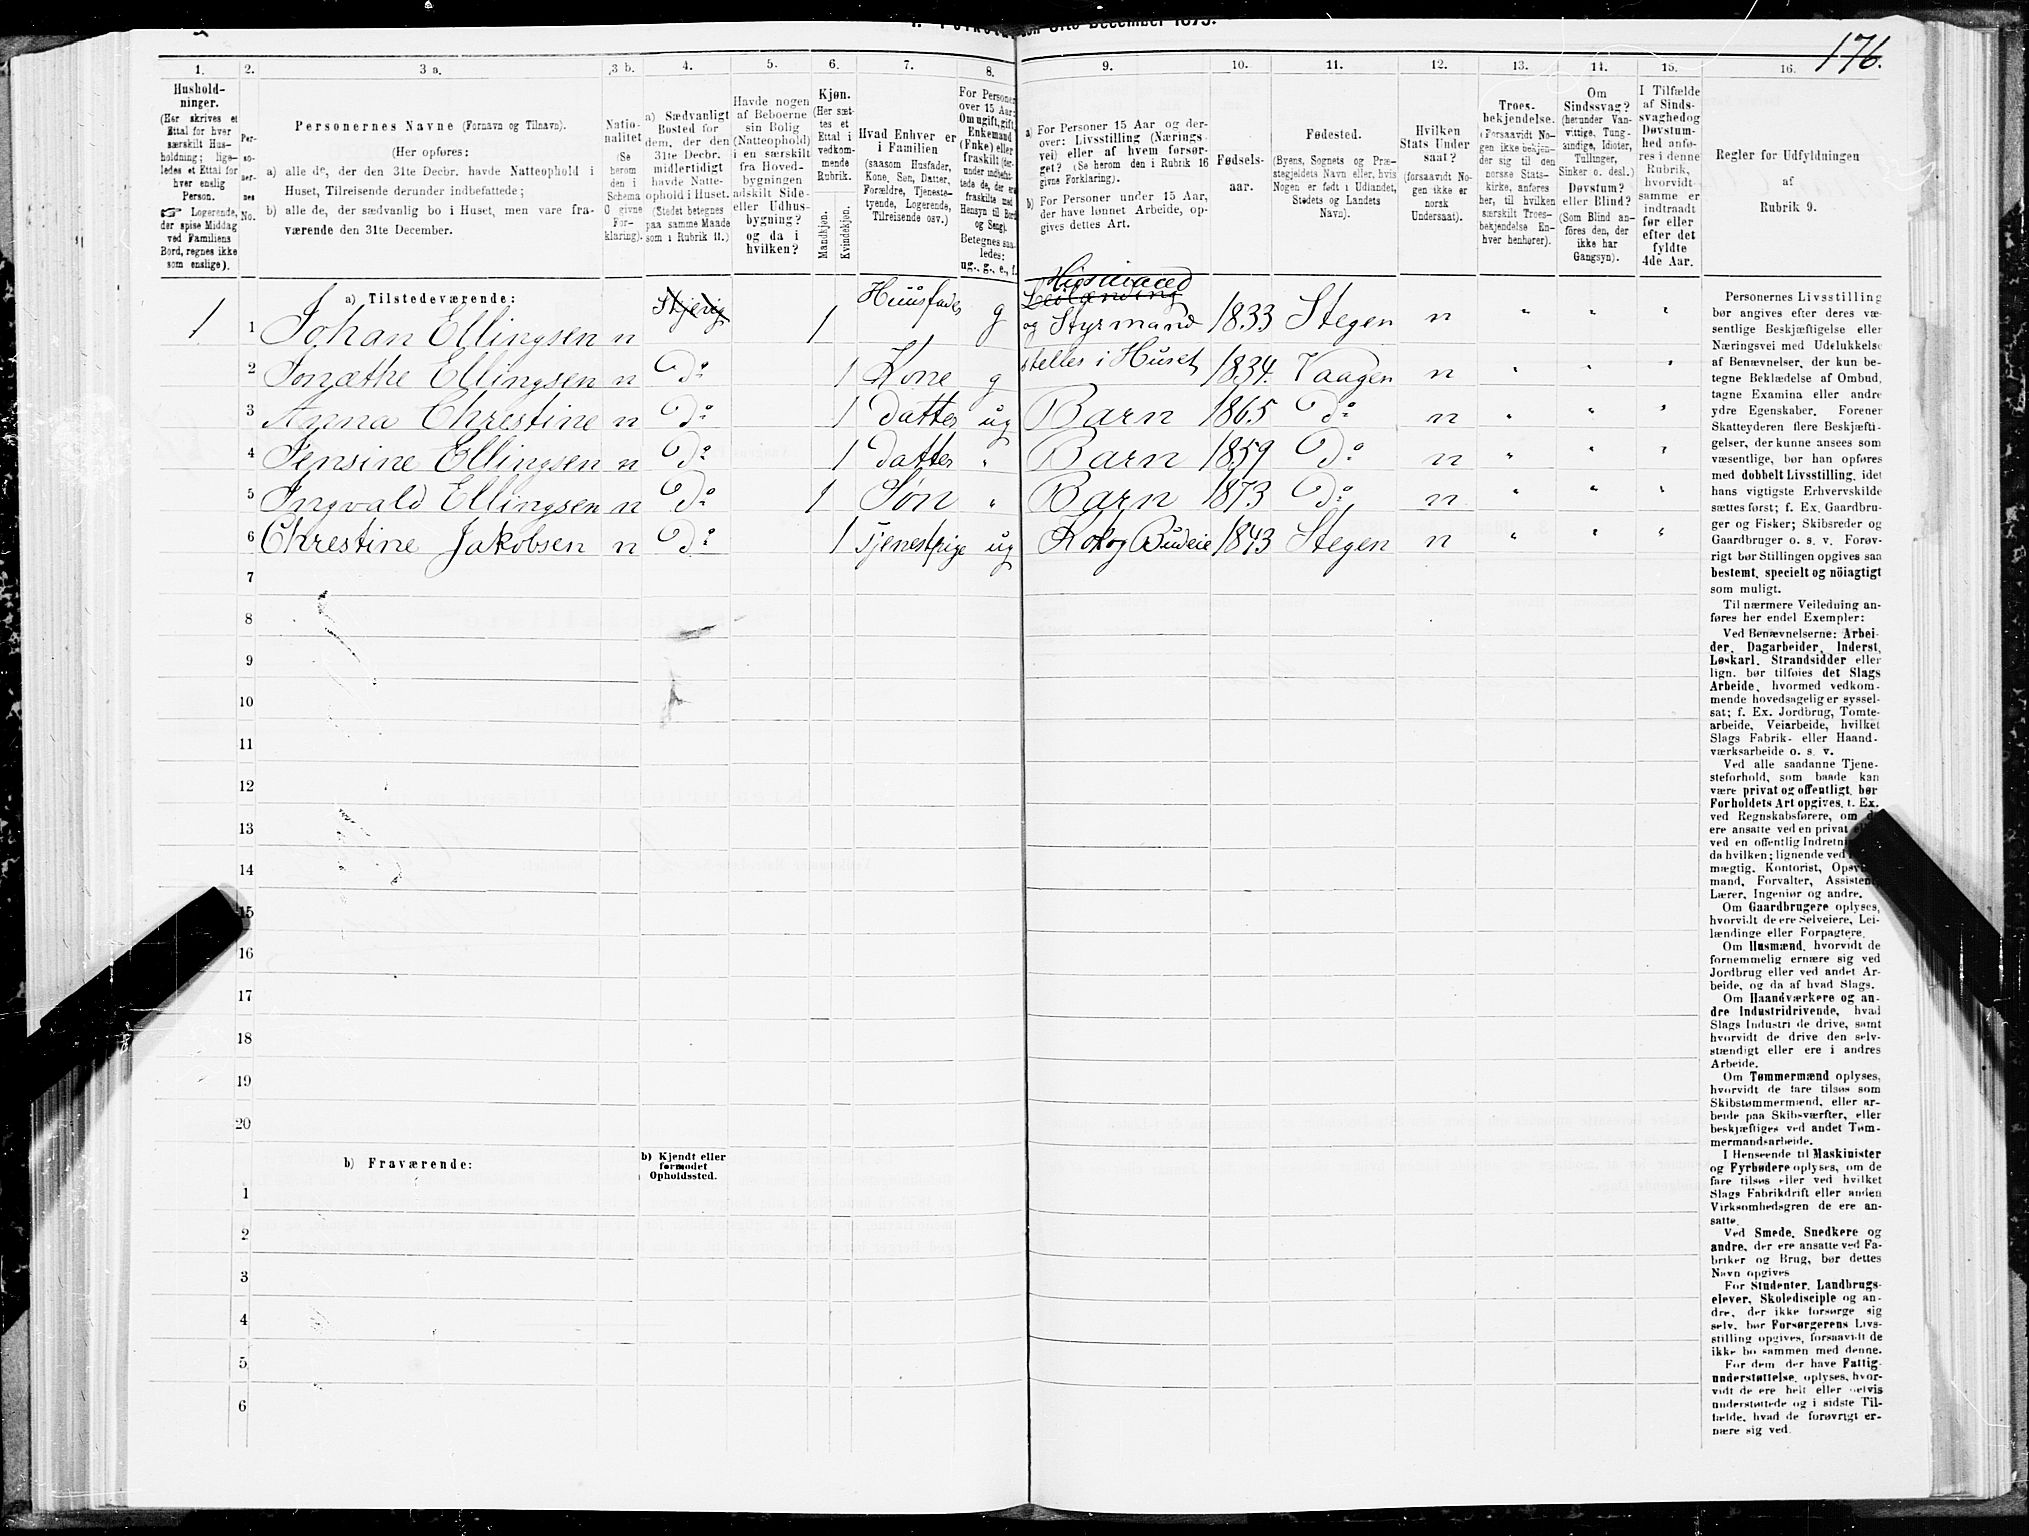 176.
1. 2. 3 a. 3 b. 4. 5. 6. 7. 8. 9. 10. 11. 12. 13. 14. 15. 16.
Hushold-
ninger.
(Her skrives et
Ettal for hver
særskilt Hus-
holdning; lige-
ledes et Ettal for
hver enslig
Person.
Logerende,
der spise Middag
ved Familiens
Bord, regnes ikke
som enslige).
Per-
so-
ner-
nes
No.
Personernes Navne (Fornavn og Tilnavn).
(Her opføres:
a) alle de, der den 31te Decbr. havde Natteophold i
Huset, Tilreisende derunder indbefattede;
b) alle de, der sædvanlig bo i Huset, men vare fra-
værende den 31te December.
Natio-
nalitet
(Se
herom
den i
Schema
O givne
For-
klaring).
a) Sædvanligt
Bosted for
dem, der den
31te Decbr.
midlertidigt
havde Natte-
ophold i Huset.
(Stedet betegnes
paa samme Maade
som i Rubrik 11.)
Havde nogen
af Beboerne
sin Bolig
(Natteophold)
i en særskilt
fra Hoved-
bygningen
adskilt Side-
eller Udhus-
bygning?
og da i
hvilken?
Kjøn.
(Her sæt-
tes et
Ettal i
vedkom-
mende
Rubrik.
Mandkjøn.
Kvindekjøn.
Hvad Enhver er
i Familien
(saasom Husfader,
Kone, Søn, Datter,
Forældre, Tjeneste-
tyende, Logerende,
Tilreisende osv.)
For Personer
over 15 Aar:
Om ugift, gift,
Enkemand
(Enke) eller
fraskilt
fraskilte med
Hensyn til Bord
og Seng).
Betegnes saa-
ledes:
ug., g., e., f.
a) For Personer 15 Aar og der-
over: Livsstilling (Nærings-
vei) eller af hvem forsør-
get? (Se herom den i Rubrik 16
givne Forklaring).
b) For Personer under 15 Aar,
der have lønnet Arbeide, op-
gives dettes Art.
Fødsels-
aar.
Fødested.
(Byens, Sognets og Præ-
stegjeldets Navn eller, hvis
Nogen er født i Udlandet,
Stedets og Landets
Navn).
Hvilken
Stats Under
saat?
(forsaavidt No-
gen ikke er
norsk
Undersaat).
Troes-
bekjendelse.
(Forsaavidt No-
gen ikke bekjen-
der sig til den
norske Stats-
kirke, anføres
her, til hvilken
særskilt Troes-
bekjendelse En-
hver henhører).
Om
Sindssvag?
(herunder Van-
vittige, Tung-
sindige, Idioter,
Tullinger,
Sinker o. desl.)
Døvstum?
eller Blind?
(Som Blind an-
føres den, der
ikke har
Gangsyn).
I Tilfælde
af Sinds-
svaghedog
Døvstum-
hed anfø-
res i denne
Rubrik,
hvorvidt
samme er
indtraadt
før eller
efter det
fyldte
4de Aar.
Regler for Udfyldningen
af
Rubrik 9.
a) Tilstedeværende:
Husmand
1 1 Johan Ellingsen n Skjerig 1 Huusfader g Leilænding og Styrmand 1833 Stegen n " " "
2 Jonæthe Ellingsen n Do 1 Kone g stelles i Huset 1834. Vaagen n " " "
3 Anna Chrestine n Do 1 Datter ug Barn 1865 Do n " " "
4 Jensine Ellingsen n Do 1 Datter " Barn 1859 Do n " " "
5 Ingvald Ellingsen n Do 1 Søn " Barn 1873 Do n " " "
6 Chrestine Jakobsen n Do 1 Tjenestpige ug Kok og Budeie 1843 Stegen n " " "
7
8
9
10
11
12
13
14
15
16
17
18
19
20
b) Fraværende:
b) Kjendt eller
formodet
Opholdssted.
1
2
3
4
5
6
Personernes Livsstilling
bør angives efter deres væ-
sentlige Beskjæftigelse eller
Næringsvei med Udelukkelse
af Benævnelser, der kun be-
tegne Beklædelse af Ombud,
tagne Examina eller andre
ydre Egenskaber. Forener
Skatteyderen flere Beskjæfti-
gelser, der kunne ansees som
væsentlige, bør han opføres
med dobbelt Livsstilling, idet
hans vigtigste Erhvervskilde
sættes først; f. Ex. Gaardbru-
ger og Fisker; Skibsreder og
Gaardbruger o. s. v. Forøv-
rigt bør Stillingen opgives saa
bestemt, specielt og nöiagtigt
som muligt.
Til nærmere Veiledning an-
føres her endel Exempler:
Ved Benævnelserne: Arbei-
der, Dagarbeider, Inderst,
Løskarl, Strandsidder eller
lign. bør tilføies det Slags
Arbeide, hvormed vedkom-
mende hovedsagelig er syssel-
sat; f. Ex. Jordbrug, Tomte-
arbeide, Veiarbeide, hvilket
Slags Fabrik- eller Haand-
værksarbeide o. s. v.
Ved alle saadanne Tjene-
steforhold, som baade kan
være privat og offentligt, bør
Forholdets Art opgives, f. Ex.
ved Regnskabsførere, om de
ere ansatte ved en privat
ved en offentlig
da hvilken; lignende ved
mægtig, Kontorist,
mand, Forvalter, Assistent
Lærer, Ingeniør og andre.
Om Gaardbrugere oplyses,
hvorvidt de ere Selveiere, Lei-
lændinge eller Forpagtere.
Om Husmænd, hvorvidt de
fornemmelig ernære sig ved
Jordbrug eller ved andet Ar-
beide, og da af hvad Slags.
Om Haandværkere og an-
dre Industridrivende, hvad
Slags Industri de drive, samt
hvorvidt de drive den selv-
stændigt eller ere i andres
Arbeide.
Om Tømmermænd oplyses,
hvorvidt de fare tilsøs som
Skibstømmermænd, eller ar-
beide paa Skibsværfter, eller
beskjæftiges ved andet Tøm-
mermandsarbeide.
I Henseende til Maskinister
og Fyrbødere oplyses, om de
fare tilsøs eller ved hvilket
Slags Fabrikdrift eller anden
Virksomhedsgren de ere an-
satte.
Ved Smede, Snedkere og
andre, der ere ansatte ved Fa-
briker og Brug, bør dettes
Navn opgives
For Studenter, Landbrugs-
elever, Skoledisciple og an-
dre, der ikke forsørge sig
selv, bør Forsørgerens Livs-
stilling opgives, forsaavidt de
ikke bo sammen med denne.
For dem, der have Fattig-
understøttelse, oplyses, hvor-
vidt de ere helt eller delvis
understøttede og i sidste Til-
fælde, hvad de forøvrigt er-
nære sig ved.